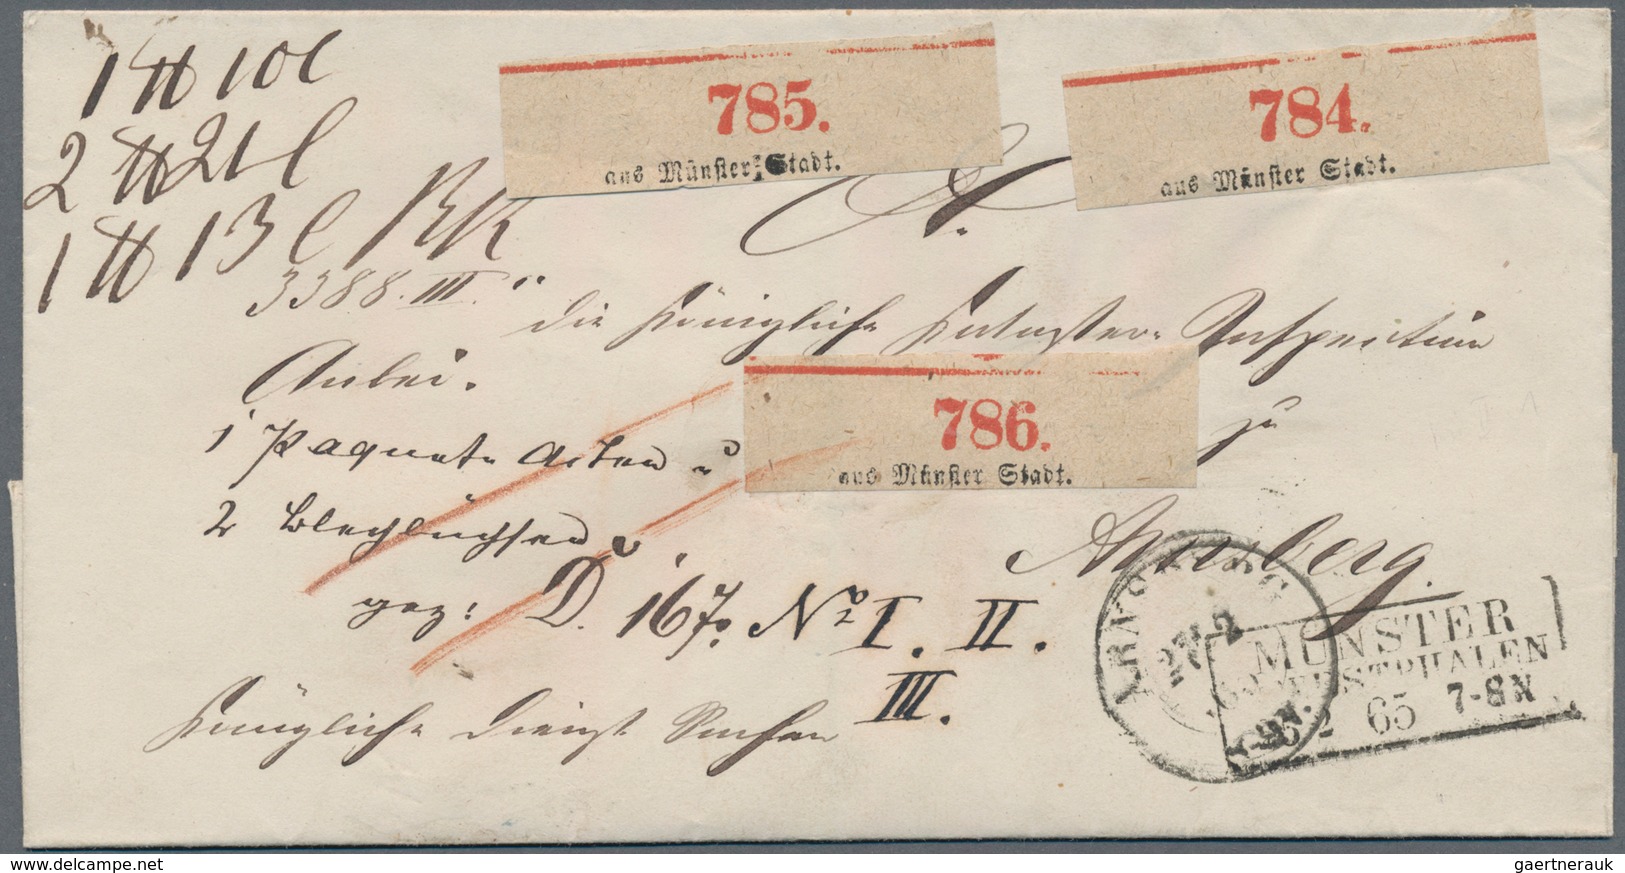 1 ℔ 10 l
2 ℔ 21 l
1 ℔ 13 l
785.
aus Münster: Stadt.
784.
aus Münster Stadt.
An
3388. III.
die Königliche Kataster-Inspection
Anbei.
1 Paquet Acten u
2 Blechbüchsen
786.
aus Münster Stadt.
zu
Arnsberg.
gez: D. 167. No I. II.
III.
Königliche Dienst Sachen
ARNSBERG
27 2
MÜNSTER
WESTPHALEN
2 65 7-8 N
www.delcampe.net
gaertnerauk